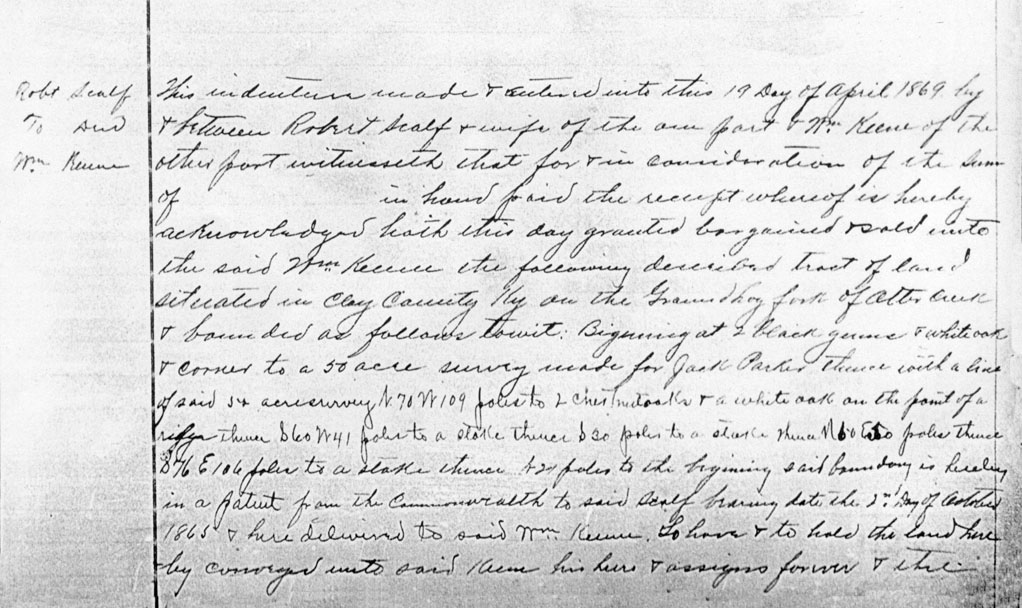 Robt Scalf
To Deed
Wm Keene
This indenture made & entered into this 19 Day of April 1869 by
& between Robert Scalf & wife of the one part & Wm Keene of the
other part witnesseth that for & in consideration of the Sum
of in hand paid the receipt whereof is hereby
acknowledged hath this day granted bargained & sold unto
the said Wm Keene the following described tract of land
situated in Clay County Ky on the Groundhog fork of Otter Creek
& bounded as follows towit: Beginning at 2 black gums & white oak
& corner to a 50 acre survey made for Jack Parker thence with a line
of said 54 acre survey N 70 W 109 poles to 2 Chestnutoaks & a white oak on the point of a
thence S 60 W 41 poles to a stake thence S 30 poles to a stake thence N 60 E 50 poles thence
S 76 E 106 poles to a stake thence N 24 poles to the begining said boundary is
in a patent from the Commonwealth to said Scalf bearing date the 2nd Day of October
1865 & here delivered to said Wm Keene. To have & to hold the land here
by conveyed unto said Keene his heirs & assigns forever & the